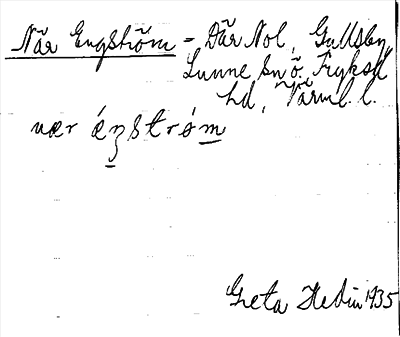 När Engström - Där Nol, Gullsby,
Lunne sn Ö. Fryksd
hd, Värml. l.
nær éŋström
Greta Hedin 1935